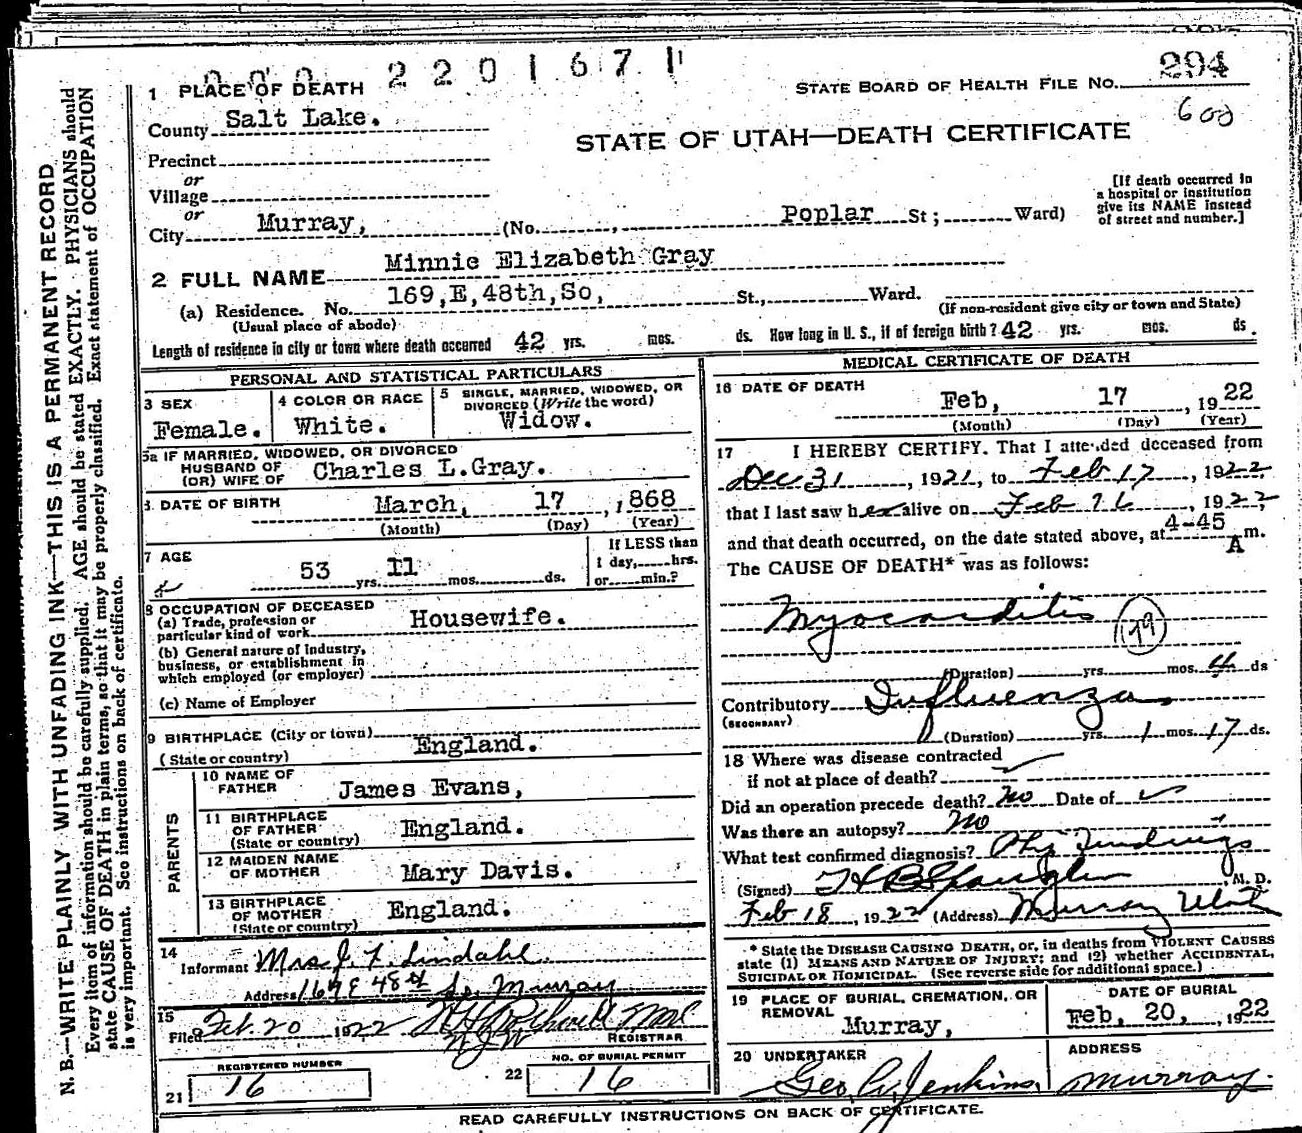 2201671
294
600
1 PLACE OF DEATH
STATE BOARD OF HEALTH FILE NO.
County Salt Lake.
STATE OF UTAH—DEATH CERTIFICATE
Precinct
or
Village
or
City Murray, (No. , Poplar St ; Ward)
[If death occurred in
a hospital or institution
give its NAME instead
of street and number.]
2 FULL NAME Minnie Elizabeth Gray
(a) Residence. No. 169,E,48th,So, St., Ward.
(Usual place of abode)
(If non-resident give city or town and State)
Length of residence in city or town where death occurred 42 yrs. mos. ds. How long in U. S., if of foreign birth? 42 yrs. mos. ds.
PERSONAL AND STATISTICAL PARTICULARS
3 SEX
Female.
4 COLOR OR RACE
White.
5 SINGLE, MARRIED, WIDOWED, OR
DIVORCED (Write the word)
Widow.
5a IF MARRIED, WIDOWED, OR DIVORCED
HUSBAND OF
(OR) WIFE OF Charles L.Gray.
DATE OF BIRTH March, 17 , 868
(Month) (Day) (Year)
7 AGE
53 yrs. 11 mos. ds.
If LESS than
1 day, hrs.
or min.?
8 OCCUPATION OF DECEASED
(a) Trade, profession or
particular kind of work Housewife.
(b) General nature of industry,
business, or establishment in
which employed (or employer)
(c) Name of Employer
9 BIRTHPLACE (City or town)
(State or country) England.
PARENTS
10 NAME OF
FATHER James Evans,
11 BIRTHPLACE
OF FATHER England.
(State or country)
12 MAIDEN NAME
OF MOTHER Mary Davis.
13 BIRTHPLACE
OF MOTHER England.
(State or country)
14
Informant Mrs J. F. Lindahl
Address 169 E 48th So. Murray
15
Filed Feb. 20 1922
REGISTRAR
REGISTERED NUMBER
21 16
NO. OF BURIAL PERMIT
22 16
MEDICAL CERTIFICATE OF DEATH
16 DATE OF DEATH
Feb, 17 , 1922
(Month) (Day) (Year)
17 I HEREBY CERTIFY. That I attended deceased from
Dec 31, 1921, to Feb 17, 1922
that I last saw her alive on Feb 16, 1922,
and that death occurred, on the date stated above, at 4-45 A m.
The CAUSE OF DEATH* was as follows:
Myocarditis
(Duration) yrs. mos. 4 ds
Contributory Influenza
(SECONDARY)
(Duration) yrs. 1 mos. 17 ds.
18 Where was disease contracted
if not at place of death?
Did an operation precede death? No Date of
Was there an autopsy? No
What test confirmed diagnosis? Phy Findings
(Signed) H B Spangler, M. D.
Feb 18, 1922 (Address) Murray Utah
* State the DISEASE CAUSING DEATH, or, in deaths from VIOLENT CAUSES
state (1) MEANS AND NATURE OF INJURY; and (2) whether ACCIDENTAL,
SUICIDAL OR HOMICIDAL. (See reverse side for additional space.)
19 PLACE OF BURIAL, CREMATION, OR
REMOVAL
Murray,
DATE OF BURIAL
Feb, 20, , 1922
20 UNDERTAKER
Geo. A. Jenkins,
ADDRESS
Murray.
READ CAREFULLY INSTRUCTIONS ON BACK OF CERTIFICATE.
N. B.—WRITE PLAINLY WITH UNFADING INK—THIS IS A PERMANENT RECORD
Every item of information should be carefully supplied. AGE should be stated EXACTLY. PHYSICIANS should
state CAUSE OF DEATH in plain terms, so that it may be properly classified. Exact statement of OCCUPATION
is very important. See instructions on back of certificate.